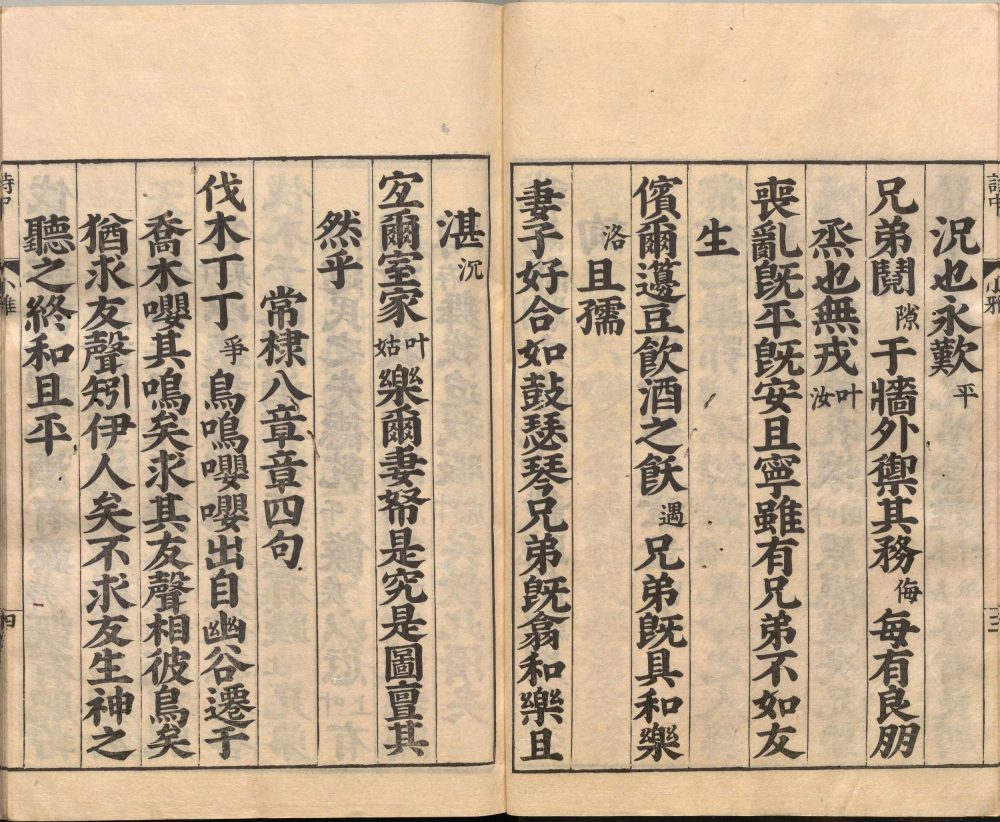 況也永歎平
兄弟鬩隙于牆外禦其務侮每有良朋
烝也無戎叶汝
喪亂既平既安且寧雖有兄弟不如友
生
儐爾籩豆飲酒之飫遇兄弟既具和樂
洛且孺
妻子好合如鼓瑟琴兄弟既翕和樂且
湛沉
宜爾室家叶姑樂爾妻帑是究是圖亶其
然乎
常棣八章章四句
伐木丁丁爭鳥鳴嚶嚶出自幽谷遷于
喬木嚶其鳴矣求其友聲相彼鳥矣
猶求友聲矧伊人矣不求友生神之
聽之終和且平